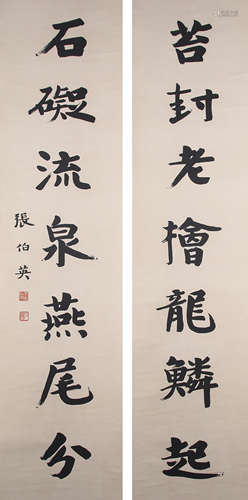 苔封老檜龍鱗起
石礙流泉燕尾分
張伯英